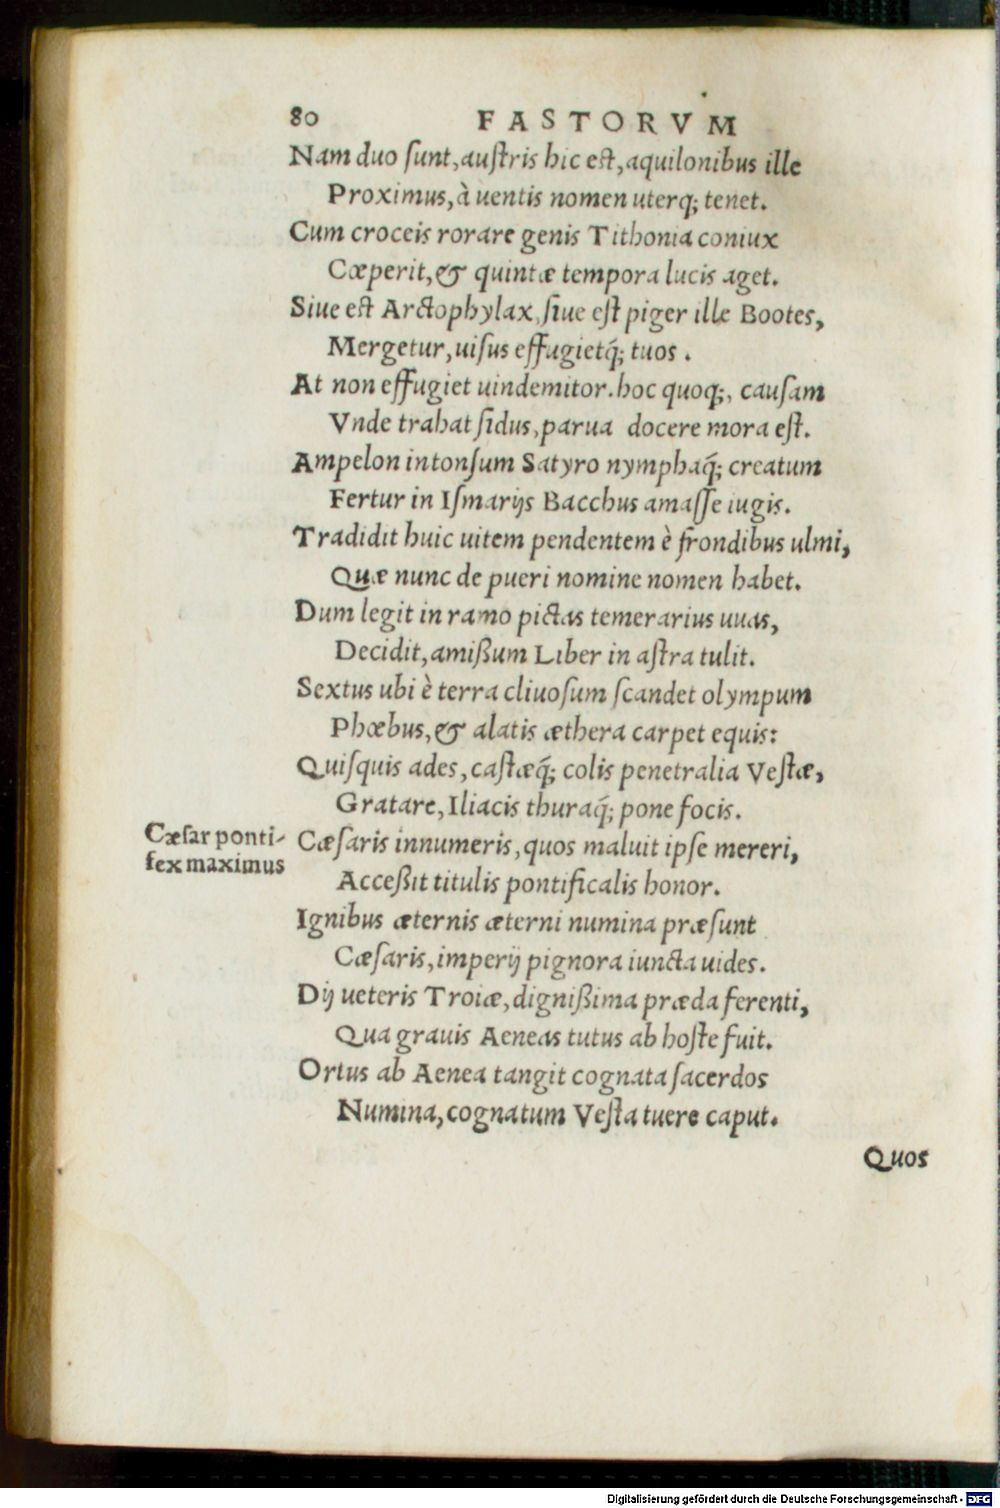 80 FASTORVM
Nam duo ſunt, auſtris hic eſt, aquilonibus ille
Proximus, à uentis nomen uterq; tenet.
Cum croceis rorare genis Tithonia coniux
Cœperit, & quintæ tempora lucis aget.
Siue eſt Arctophylax, ſiue eſt piger ille Bootes,
Mergetur, uiſus effugietq́; tuos.
At non effugiet uindemitor. hoc quoq;, cauſam
Vnde trahat ſidus, parua docere mora eſt.
Ampelon intonſum Satyro nymphaq́; creatum
Fertur in Iſmarijs Bacchus amaſſe iugis.
Tradidit huic uitem pendentem è frondibus ulmi,
Quæ nunc de pueri nomine nomen habet.
Dum legit in ramo pictas temerarius uuas,
Decidit, amißum Liber in aſtra tulit.
Sextus ubi è terra cliuoſum ſcandet olympum
Phœbus, & alatis æthera carpet equis:
Quiſquis ades, caſtæq́; colis penetralia Veſtæ,
Gratare, Iliacis thuraq́; pone focis.
Cæſar ponti-
fex maximus
Cæſaris innumeris, quos maluit ipſe mereri,
Acceßit titulis pontificalis honor.
Ignibus æternis æterni numina præſunt
Cæſaris, imperij pignora iuncta uides.
Dij ueteris Troiæ, dignißima præda ferenti,
Qua grauis Aeneas tutus ab hoſte fuit.
Ortus ab Aenea tangit cognata ſacerdos
Numina, cognatum Veſta tuere caput.
Quos
Digitalisierung gefördert durch die Deutsche Forschungsgemeinschaft - DFG